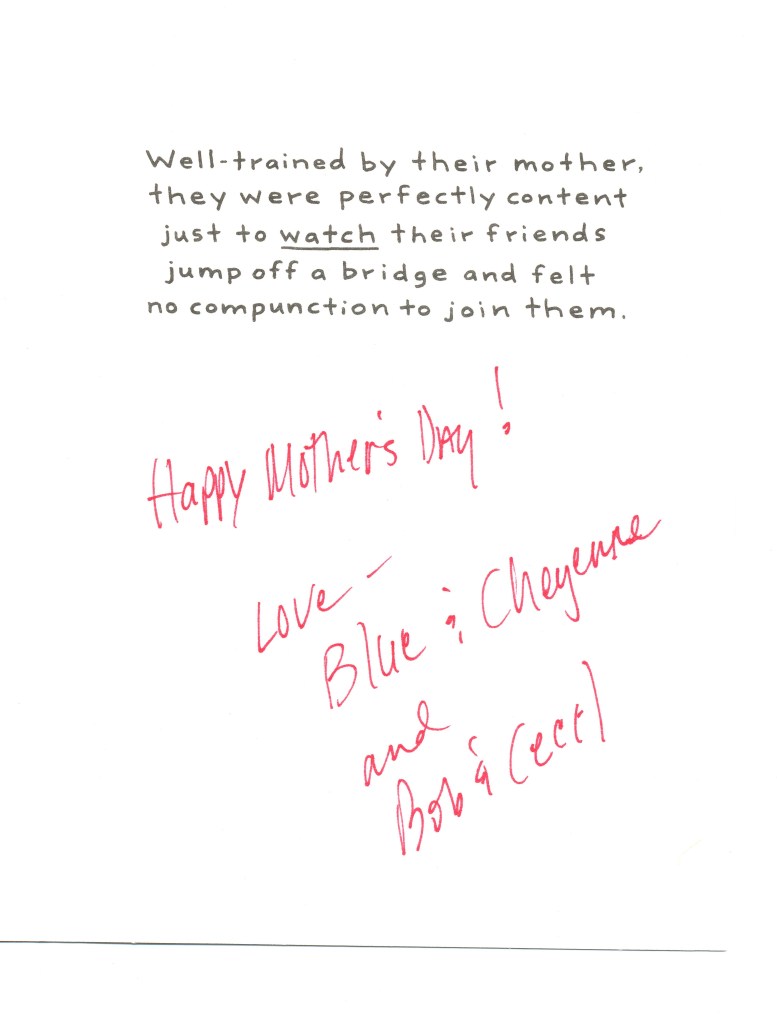 Well-trained by their mother,
they were perfectly content
just to watch their friends
jump off a bridge and felt
no compunction to join them.
Happy Mother's Day!
Love -
Blue & Cheyenne
and
Bob &